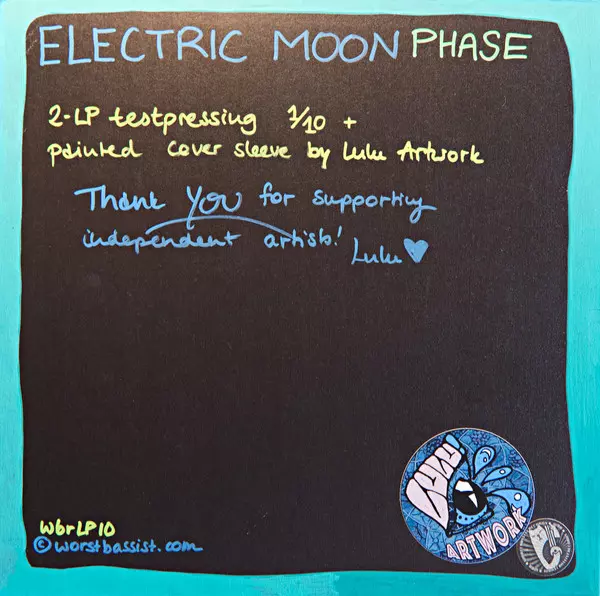 ELECTRIC MOON PHASE
2-LP testpressing 1/10 +
painted cover sleeve by Lulu Artwork
Thank YOU for supporting
independent artists!
Lulu ♥
LULU!
ARTWORK
WbrLP10
©worstbassist.com